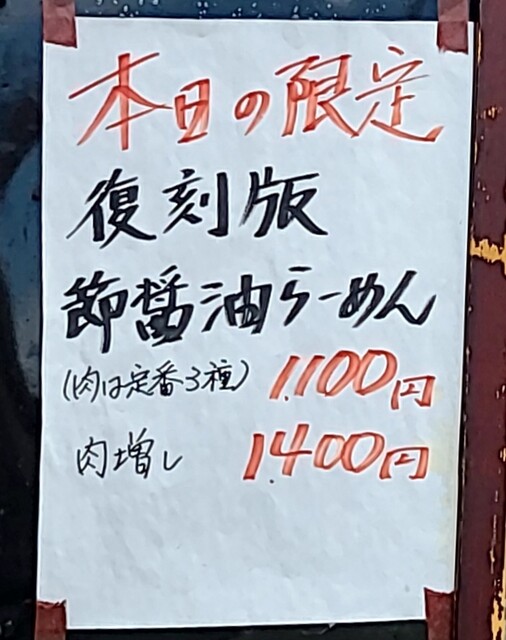 本日の限定
復刻版
節醤油らーめん
(肉は定番3種) 1,100円
肉増し 1,400円